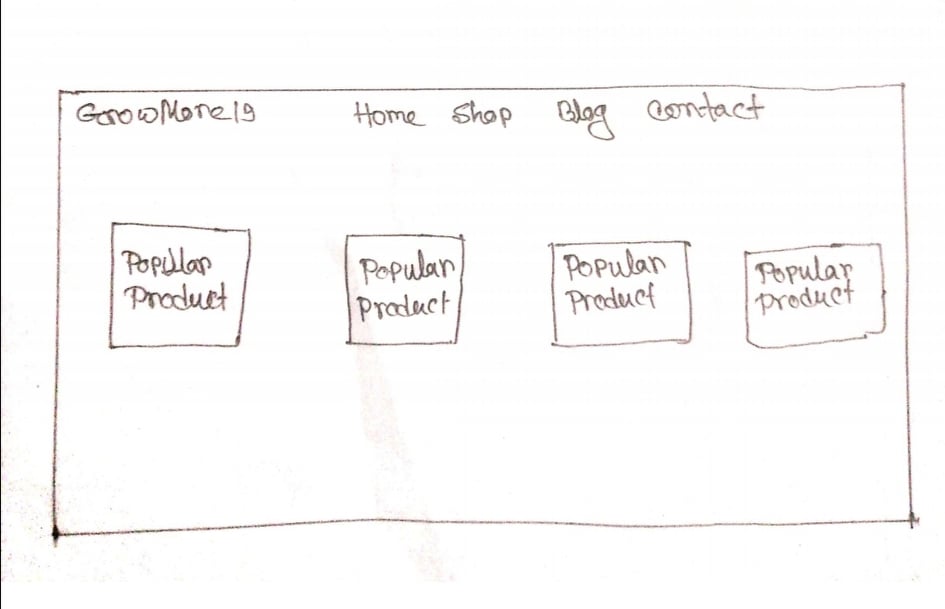 GrowMore19 Home Shop Blog Contact
Popular Product
Popular Product
Popular Product
Popular Product